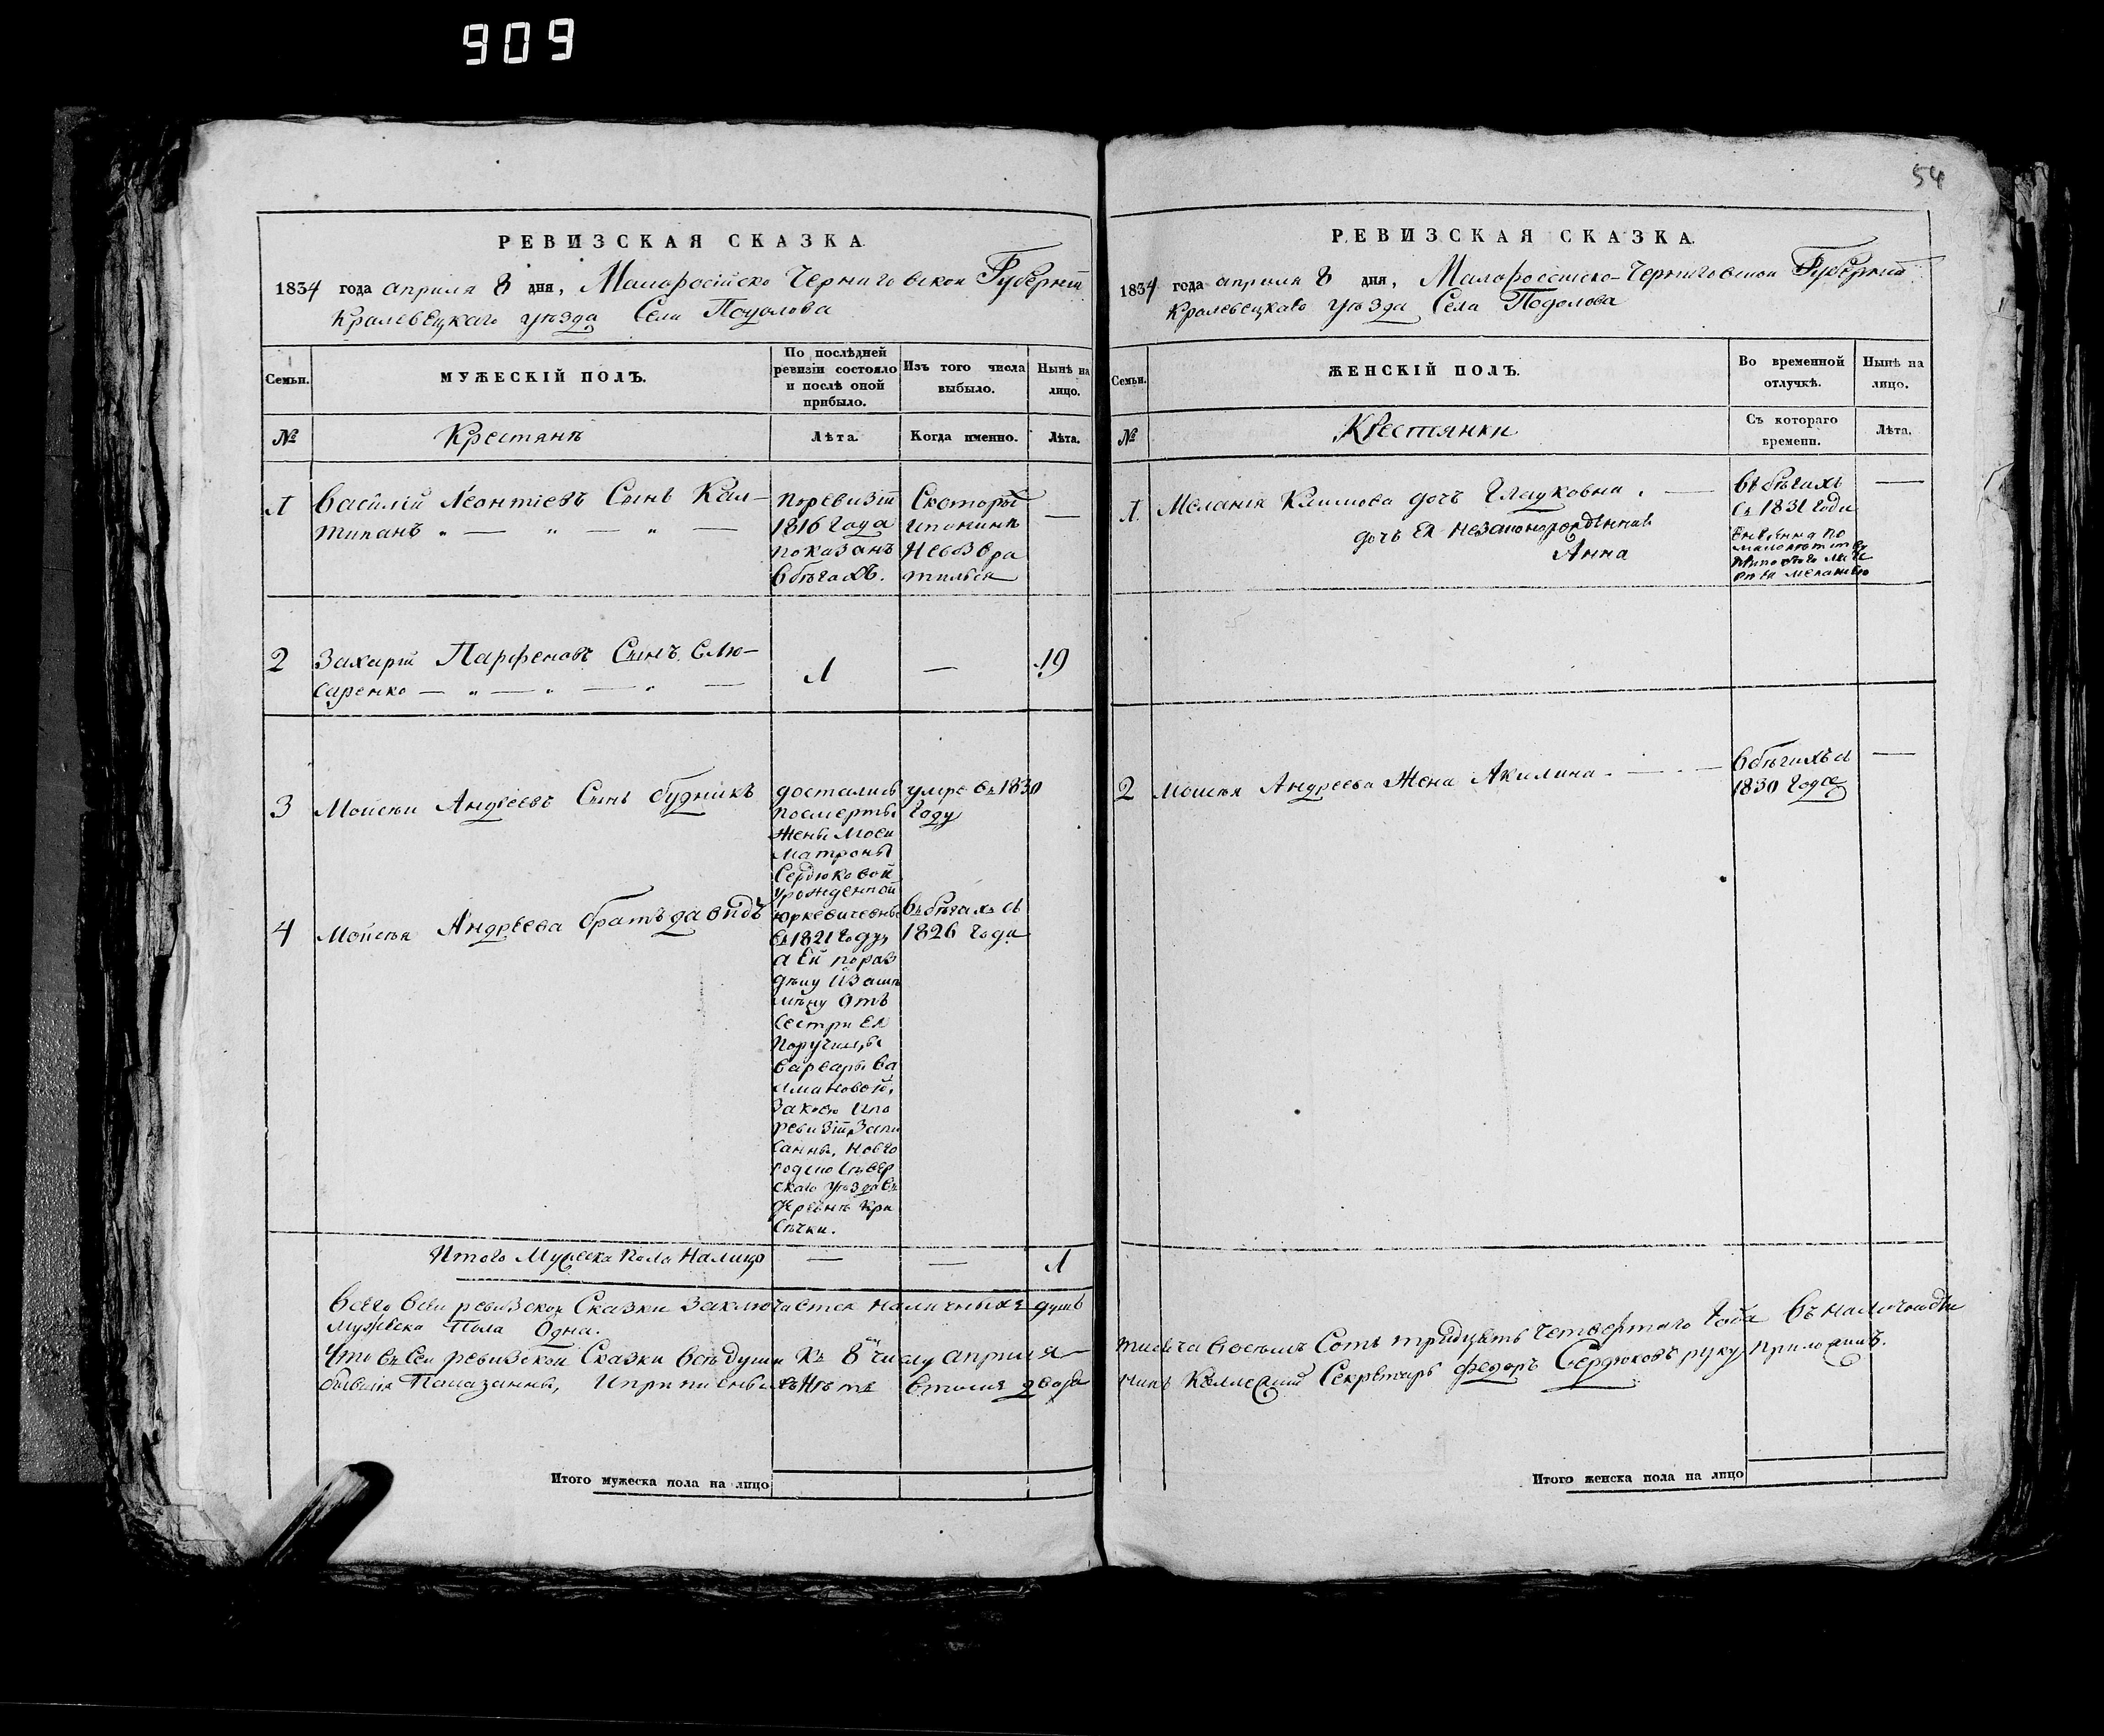 909
РЕВИЗСКАЯ СКАЗКА.
1834 года апреля 8 дня, Малоросійско Черниговской Губерніи
Кролевецкаго уѣзда Села Подолова
Семьи.
МУЖЕСКІЙ ПОЛЪ.
По послѣдней
ревизіи состояло
и послѣ оной
прибыло.
Изъ того числа
выбыло.
Нынѣ на
лицо.
№
Крестянъ
Лѣта.
Когда именно.
Лѣта.
1
Василій Леонтіевъ Сынъ Кал-
типанъ
поревизіи
1816 года
показанъ
вбѣгахъ.
Скоторы
ипонинѣ
Невозвра
тился
—
2
Захарій Парфеновъ Сынъ Слю-
саренко
1
—
19
3
Мойсей Андреевъ Сынъ будникъ
достались
посмерты
жены Моей
Матроны
Сердюковой
урожденной
Юркевичевны
въ 1821 году,
а Ей пораз
дѣлу
отъ
Сестри Ея
Поручицы
Варвары
Закоею ипо
ревизіи Запи
санны, Новго
родско Сѣвер
скаго уѣзда въ
деревнѣ Кри
умре въ 1830
Году
4
Мойсея Андреева братъ давидъ
въ бѣгахъ съ
1826 Года
Итого Мужеска пола Налицо — — 1
всего всей ревизской Сказки Заключается наличныхъ душъ
мужеска Пола Одна.
Что въ Сей ревизской Сказки всѣ души къ 8 числу апреля
Показанны, 
54
РЕВИЗСКАЯ СКАЗКА.
1834 года апреля 8 дня, Малоросійско-Черниговской Губерніи
Кролевецкаго уѣзда Села Подолова
Семьи.
ЖЕНСКІЙ ПОЛЪ.
Во временной
отлучкѣ.
Нынѣ на
лицо.
№
Крестянки
Съ котораго
времени.
Лѣта.
1
Меланія Климова дочъ —
дочъ Ея незаконорожденная
Анна
вбѣгахъ
съ 1831 года
—
2
Мойсея Андреева Жена Акилина
вбѣгахъ съ
1830 года
—
тисяча восемъ Сотъ тридцять четвертаго Года
Секретаръ федоръ Сердюковъ руку приложилъ.
Итого мужеска пола на лицо
Итого женска пола на лицо